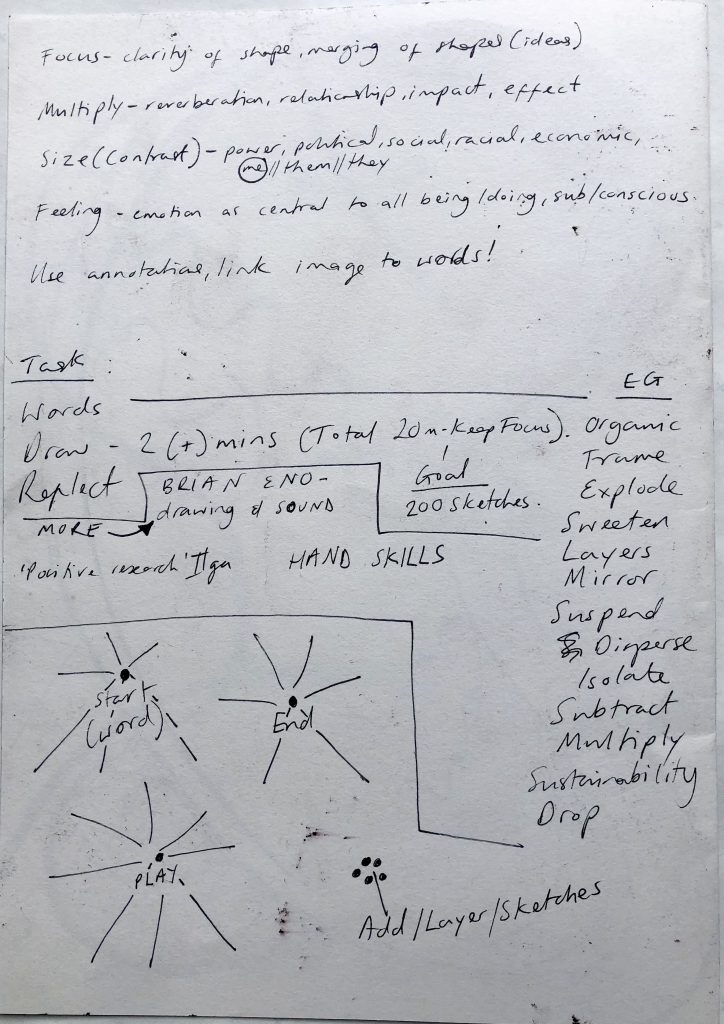 Focus - clarity of shape, merging of shapes (ideas)
Multiply - reverberation, relationship, impact, effect
Size (Contrast) - power, political, social, racial, economic,
me//them//they
Feeling - emotion as central to all being/doing, sub/conscious.
Use annotation, link image to words!
Task :
Words
Draw - 2 (+) mins (Total 20m - Keep Focus).
Reflect
MORE
BRIAN ENO -
drawing & SOUND
Goal
200 sketches.
'Positive research'
HAND SKILLS
EG
Organic
Frame
Explode
Sweeten
Layers
Mirror
Suspend
Disperse
Isolate
Subtract
Multiply
Sustainability
Drop
Start
(word)
End
PLAY
Add/Layer/Sketches